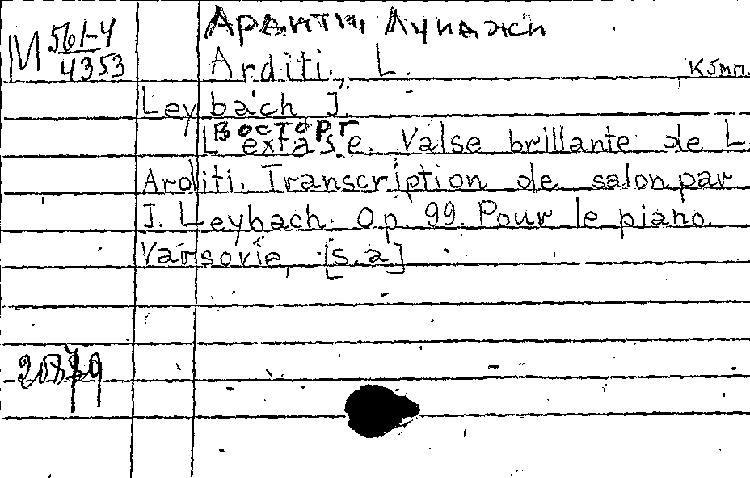 Ардити Луиджи
М 561-4
4353
Arditi, L.
Leybach J.
Восторг
L'extase. Valse brillante de L.
Arditi. Transcription de salon par
J. Leybach. Op 99. Pour le piano
Varsovie, [s.a]